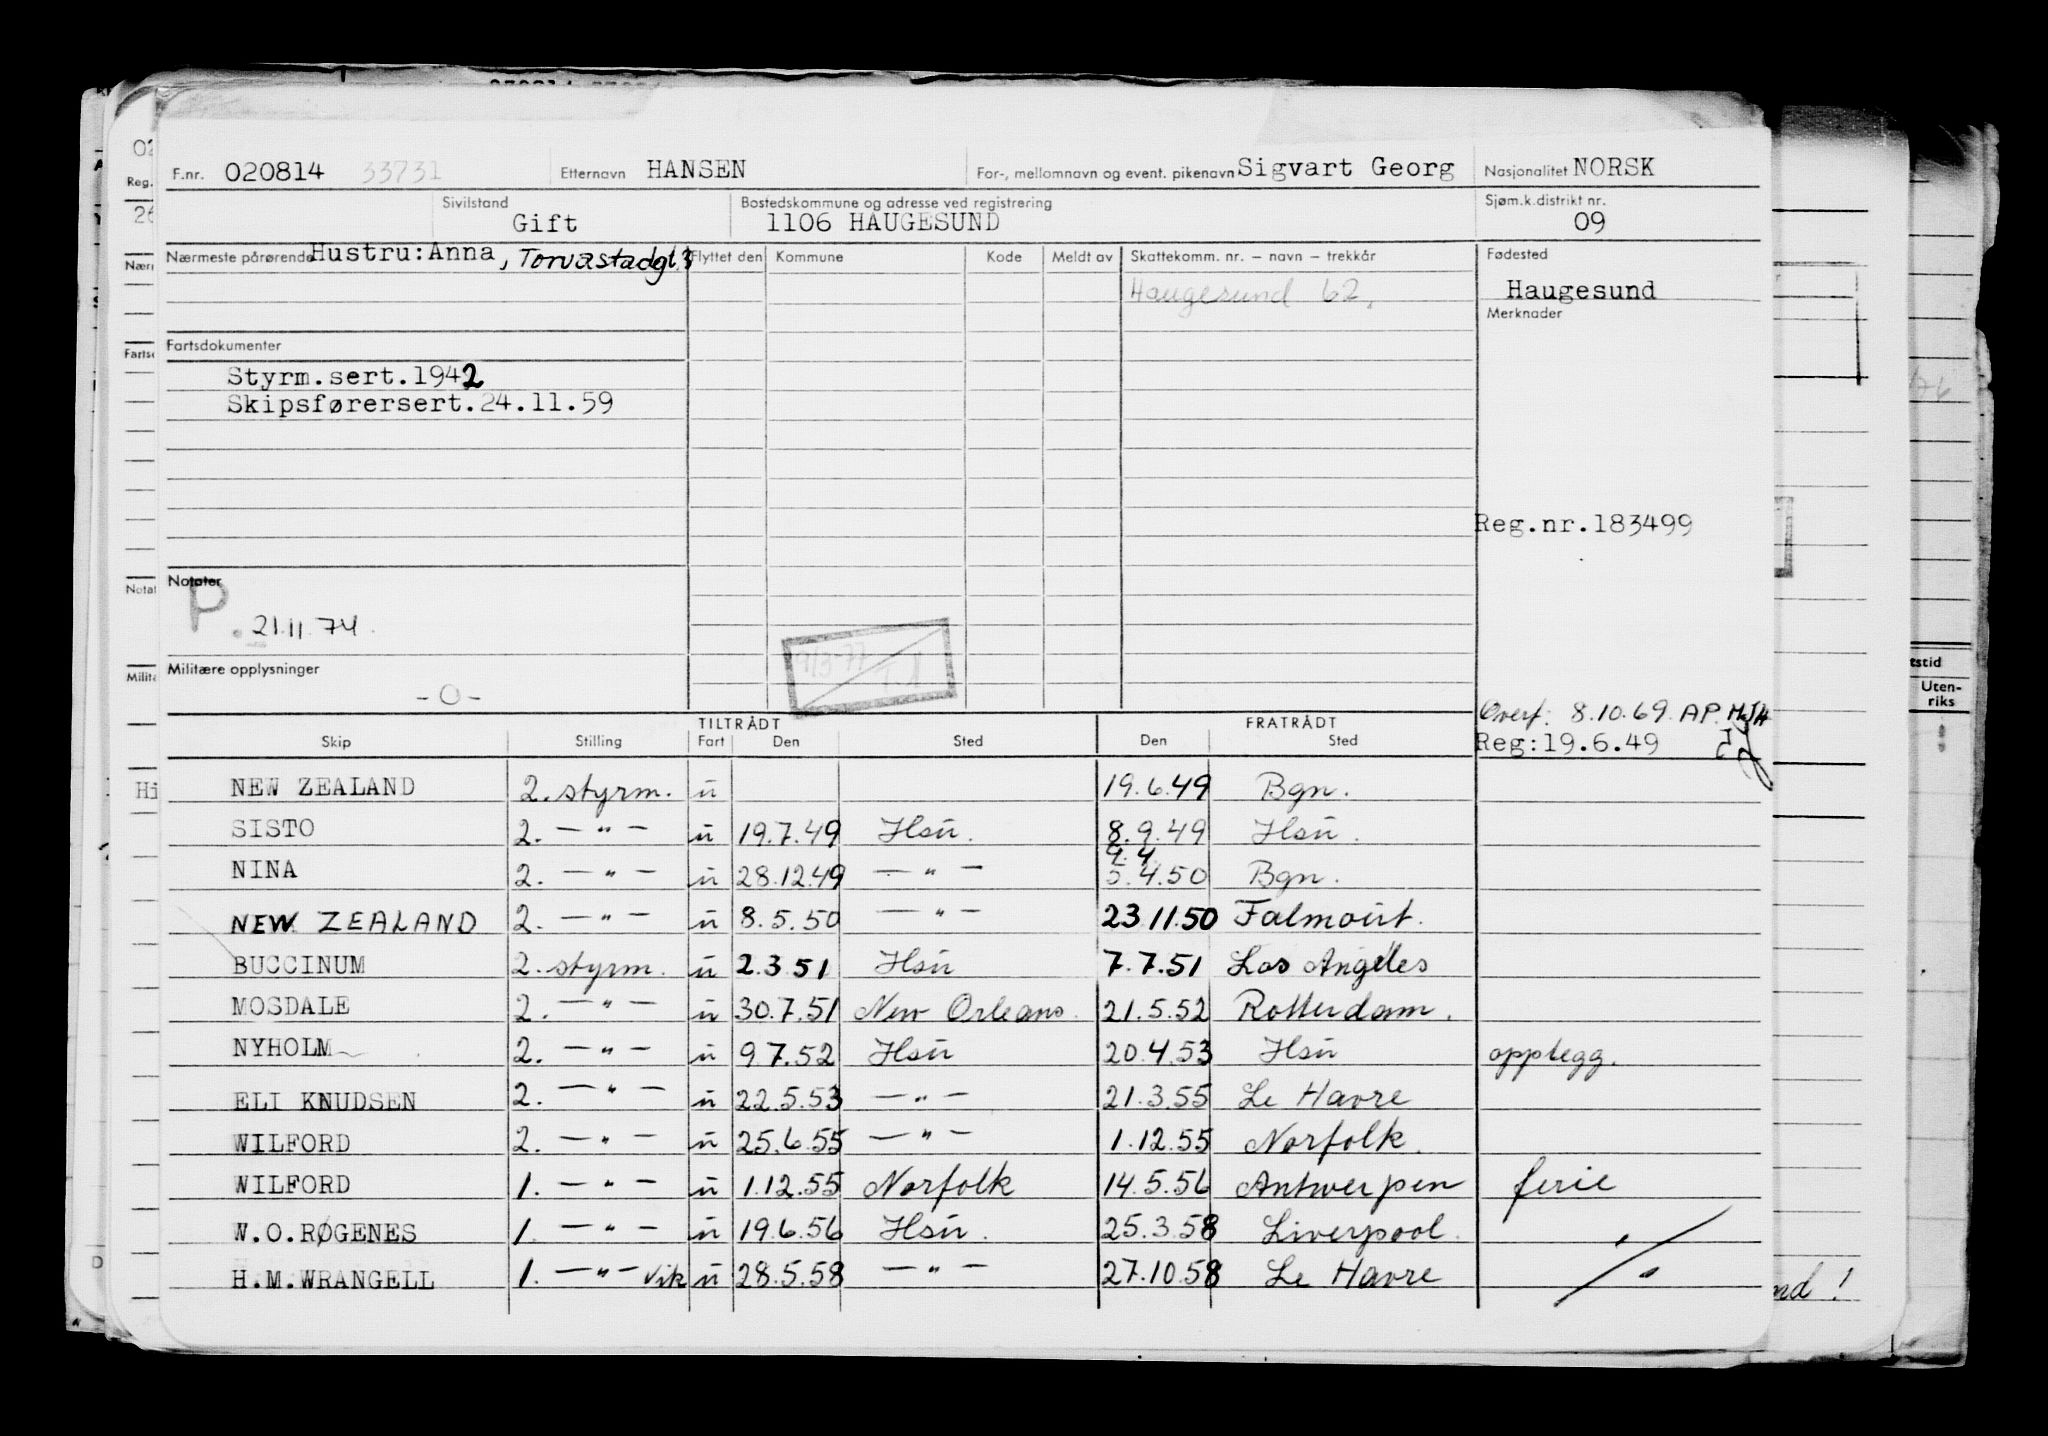 F.nr. 020814 33731 Etternavn HANSEN For-, mellomnavn og event. pikenavn Sigvart Georg Nasjonalitet NORSK
Sivilstand Gift Bostedskommune og adresse ved registrering 1106 HAUGESUND Sjøm.k.distrikt nr. 09
Nærmeste pårørende Hustru: Anna, Torvastadgt. 3 Flyttet den Kommune Kode Meldt av Skattekomm. nr. – navn – trekkår Fødested
Haugesund 62. Haugesund
Merknader
Fartsdokumenter
Styrm.sert.1942
Skipsførersert.24.11.59
Reg.nr.183499
Notater
P. 21.11.74.
9/3-77
Militære opplysninger
-0-
Overf: 8.10.69. AP.
TILTRÅDT FRATRÅDT
Skip Stilling Fart Den Sted Den Sted Reg:19.6.49
NEW ZEALAND 2. styrm. ü 19.6.49 Bgn.
SISTO 2. —"— ü 19.7.49 Hsü. 8.9.49 Hsü.
4.4.
NINA 2. —"— ü 28.12.49 —"— 5.4.50 Bgn.
NEW ZEALAND 2. —"— ü 8.5.50 —"— 23 11.50 Falmout.
BUCCINUM 2. styrm. ü 2.3 51 Hsü 7.7.51 Los Angeles
MOSDALE 2. —"— ü 30.7.51 New Orleans. 21.5.52 Rotterdam.
NYHOLM 2. —"— ü 9.7.52 Hsü 20.4.53 Hsü opplegg.
ELI KNUDSEN 2. —"— ü 22.5.53 —"— 21.3.55 Le Havre
WILFORD 2. —"— ü 25.6.55 —"— 1.12.55 Norfolk.
WILFORD 1. —"— ü 1.12.55 Norfolk 14.5.56 Antwerpen ferie
W.O.RØGENES 1. —"— ü 19.6.56 Hsü. 25.3.58 Liverpool.
H.M.WRANGELL 1. —"— vik ü 28.5.58 —"— 27.10.58 Le Havre